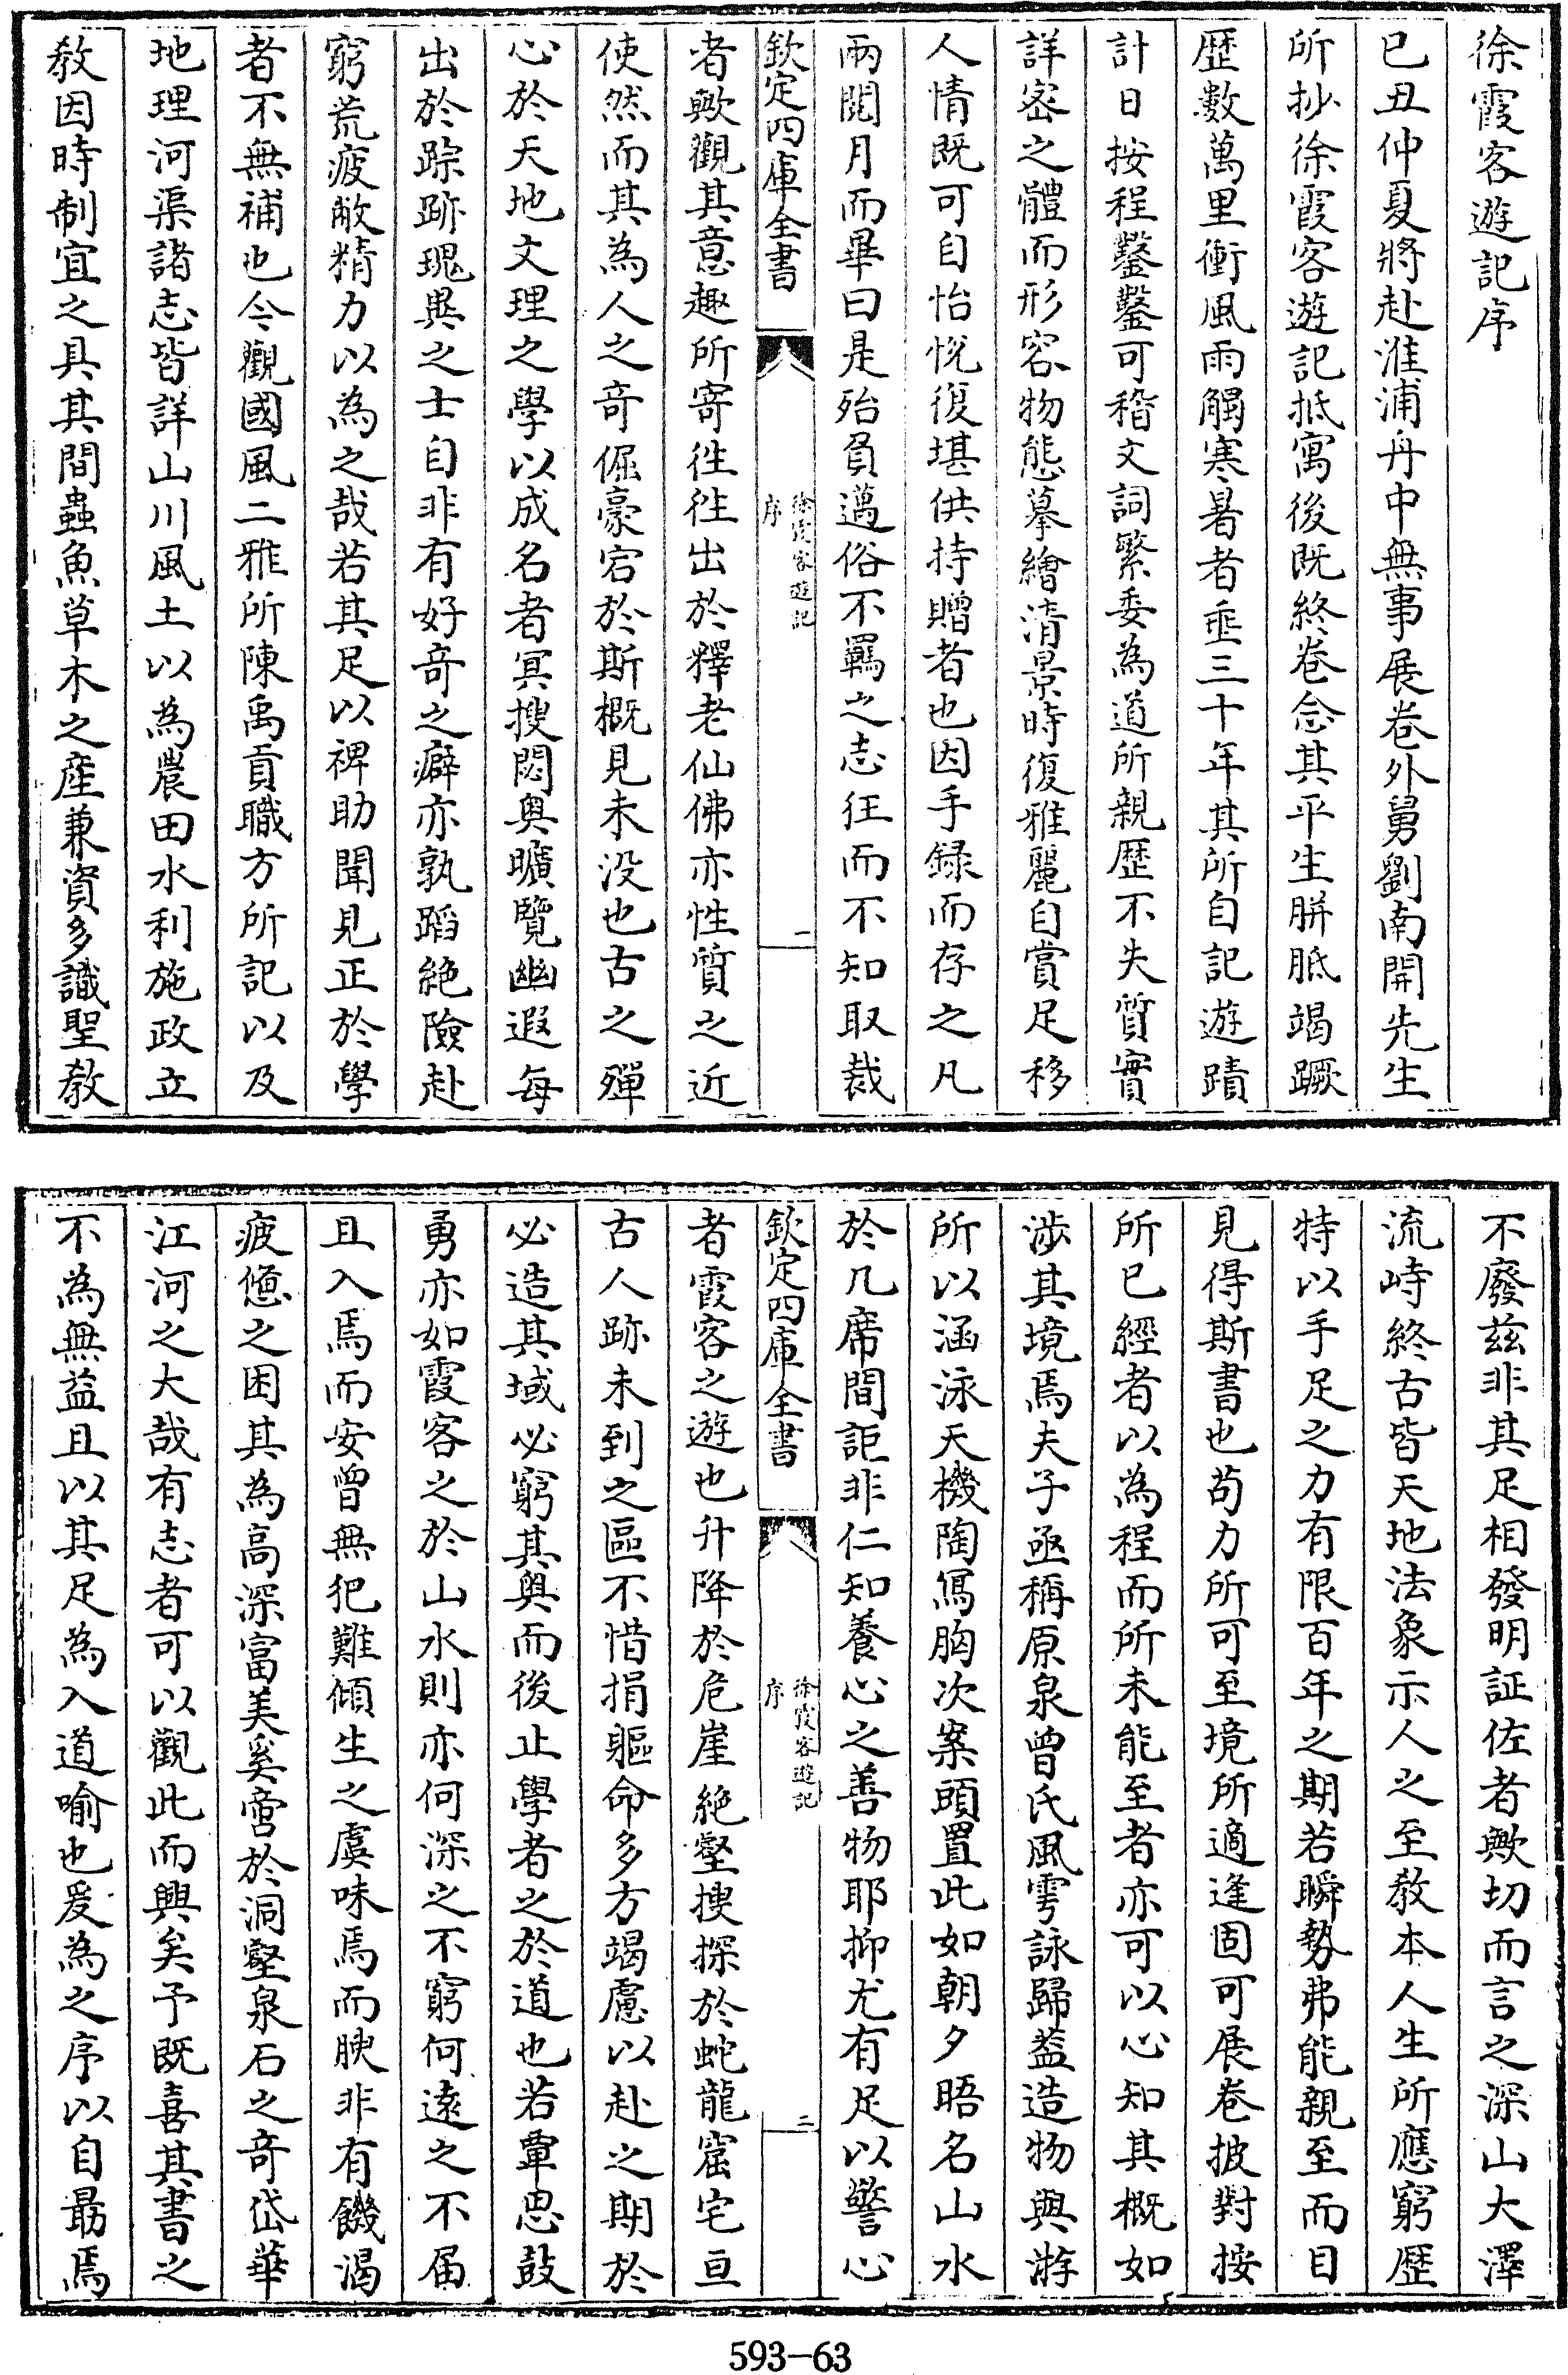 徐霞客遊記序
已丑仲夏將赴淮浦舟中無事展卷外舅劉南開先生
所抄徐霞客遊記抵寓後既終卷念其平生胼胝竭蹶
歴數萬里衝風雨觸寒暑者垂三十年其所自記遊蹟
計日按程鑿鑿可稽文詞繁委為道所親歴不失質實
詳宻之體而形容物態摹繪清景時復雅麗自賞足移
人情既可自怡悦復堪供持贈者也因手録而存之凡
兩閲月而畢曰是殆負邁俗不羈之志狂而不知取裁
欽定四庫全書
徐霞客遊記
序
一
者歟觀其意趣所寄徃徃出於釋老仙佛亦性質之近
使然而其為人之竒倔豪宕於斯概見未没也古之殫
心於天地文理之學以成名者冥搜閟奥曠覽幽遐每
出於踪跡瑰異之士自非有好竒之癖亦孰蹈絶險赴
窮荒疲敝精力以為之哉若其足以裨助聞見正於學
者不無補也今觀國風二雅所陳禹貢職方所記以及
地理河渠諸志皆詳山川風土以為農田水利施政立
教因時制宜之具其間蟲魚草木之産兼資多識聖教
不廢兹非其足相發明証佐者歟切而言之深山大澤
流峙終古皆天地法象示人之至教本人生所應窮歴
特以手足之力有限百年之期若瞬勢弗能親至而目
見得斯書也苟力所可至境所適逢固可展卷披對按
所已經者以為程而所未能至者亦可以心知其概如
涉其境焉夫子亟稱原泉曾氏風雩詠歸葢造物與游
所以涵泳天機陶寫胸次案頭置此如朝夕晤名山水
於几席間詎非仁知養心之善物耶抑尤有足以警心
欽定四庫全書
徐霞客遊記
序
二
者霞客之遊也升降於危崖絶壑搜探於蛇龍窟宅亘
古人跡未到之區不惜捐軀命多方竭慮以赴之期於
必造其域必窮其奥而後止學者之於道也若覃思鼓
勇亦如霞客之於山水則亦何深之不窮何逺之不届
且入焉而安曾無犯難傾生之虞味焉而腴非有饑渴
疲憊之困其為高深富美奚啻於洞壑泉石之竒岱華
江河之大哉有志者可以觀此而興矣予既喜其書之
不為無益且以其足為入道喻也爰為之序以自勗焉
593-63